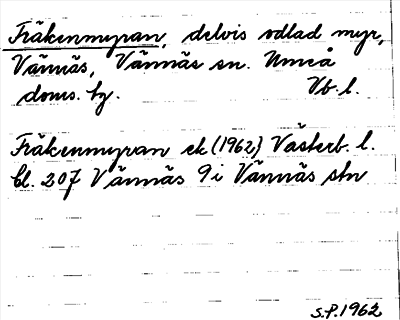 Fräkenmyran, delvis odlad myr,
Vännäs, Vännäs sn. Umeå
doms. hg. Vb. l.
Fräkenmyran ek (1962) Västerb. l.
bl. 207 Vännäs 9 i Vännäs stn
S.P. 1962